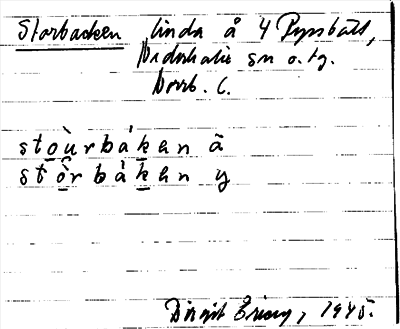 Storbacken linda å 4 Pypsbäll,
Nederkalix sn o. tg.
Norrb. L.
stòu̱rbáken ä
stò̱rbàken y
Birgit Ericy, 1945.